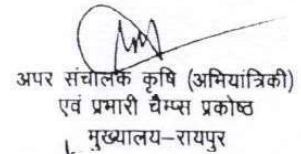 अपर संचालक कृषि (अभियांत्रिकी)
एवं प्रभारी चैम्प्स प्रकोष्ठ
मुख्यालय–रायपुर